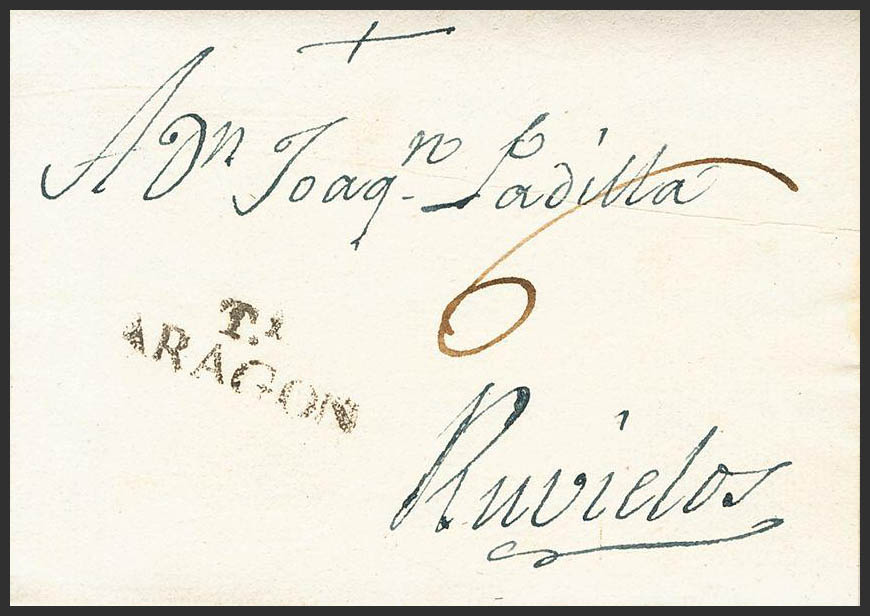 +
A Dn Joaqn. Padilla
6
T.1
ARAGON
Ruvielos